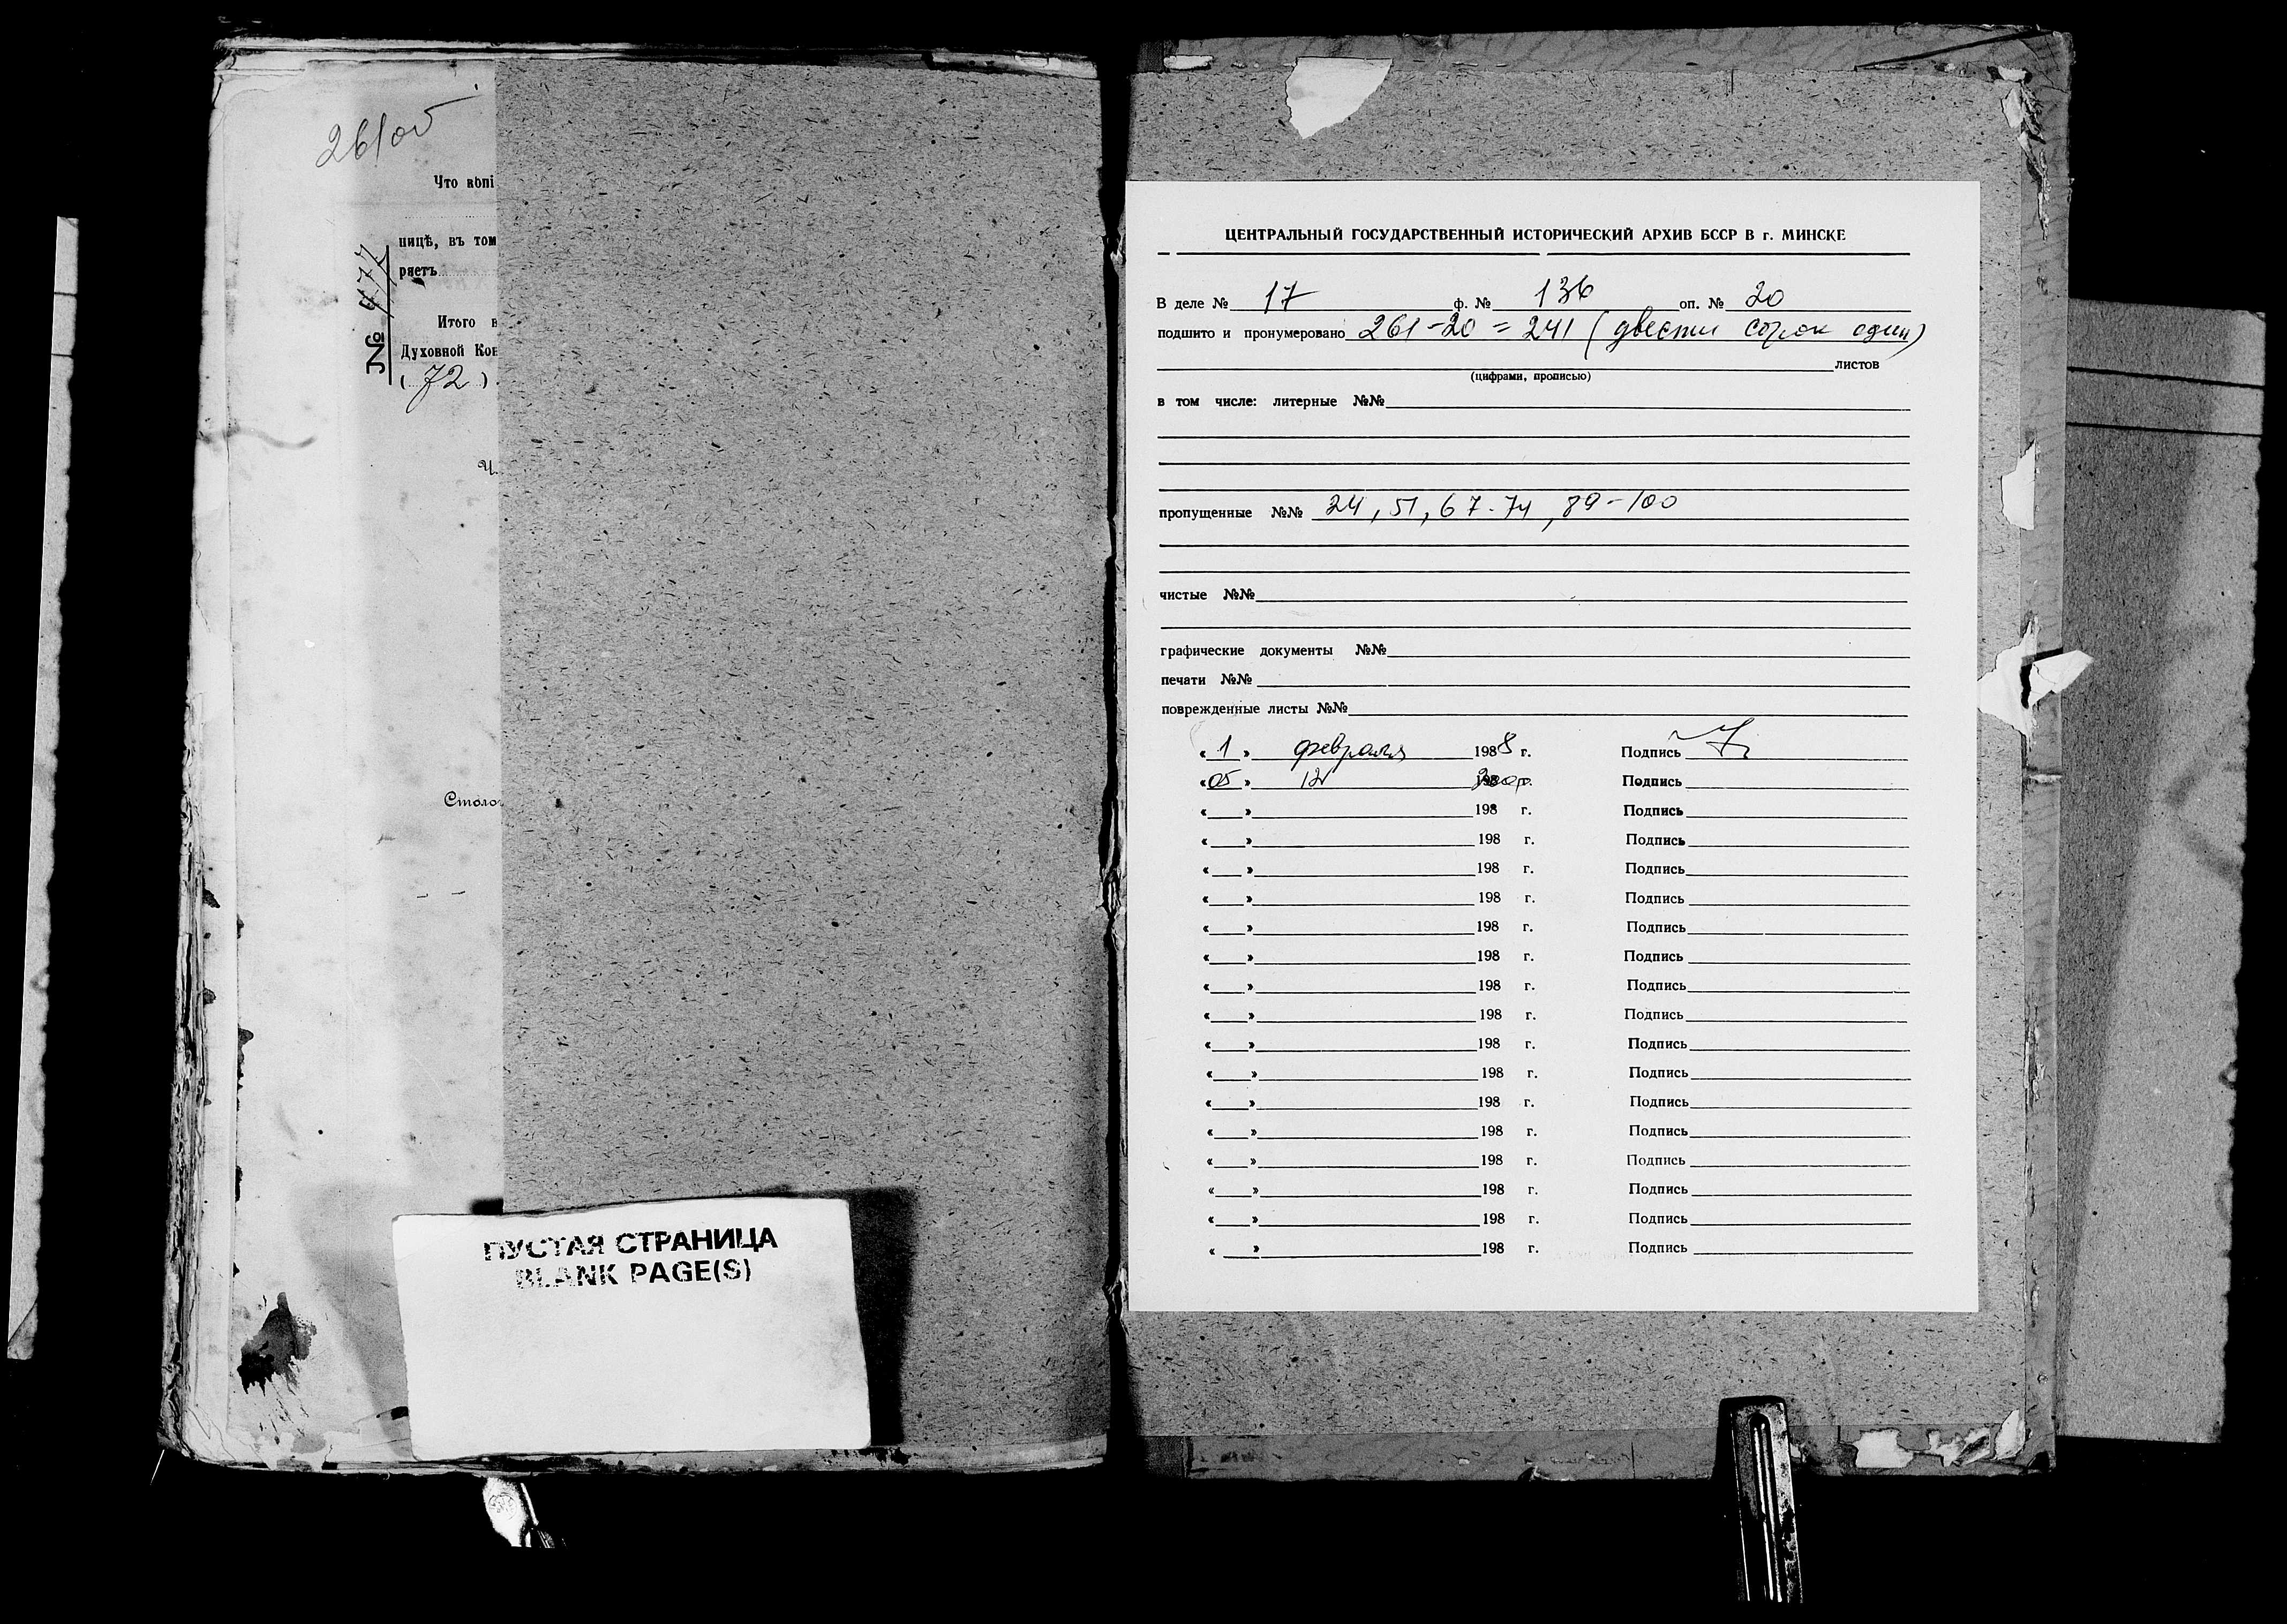 261об
Что копі
ницѣ, въ том
ряетъ
№ 477
Итого в
Духовной Кон
( 72 ).
Столо
ПУСТАЯ СТРАНИЦА
BLANK PAGE(S)
ЦЕНТРАЛЬНЫЙ ГОСУДАРСТВЕННЫЙ ИСТОРИЧЕСКИЙ АРХИВ БССР В г. МИНСКЕ
В деле № 17 ф. № 136 оп. № 20
подшито и пронумеровано 261-20=241 (двести сорок один)
листов
(цифрами, прописью)
в том числе: литерные №№
пропущенные №№ 24, 51, 67-74, 89-100
чистые №№
графические документы №№
печати №№
поврежденные листы №№
« 1 » февраля 1988 г. Подпись
« 05 » 12 198 г. Подпись
« » 198 г. Подпись
« » 198 г. Подпись
« » 198 г. Подпись
« » 198 г. Подпись
« » 198 г. Подпись
« » 198 г. Подпись
« » 198 г. Подпись
« » 198 г. Подпись
« » 198 г. Подпись
« » 198 г. Подпись
« » 198 г. Подпись
« » 198 г. Подпись
« » 198 г. Подпись
« » 198 г. Подпись
« » 198 г. Подпись
« » 198 г. Подпись